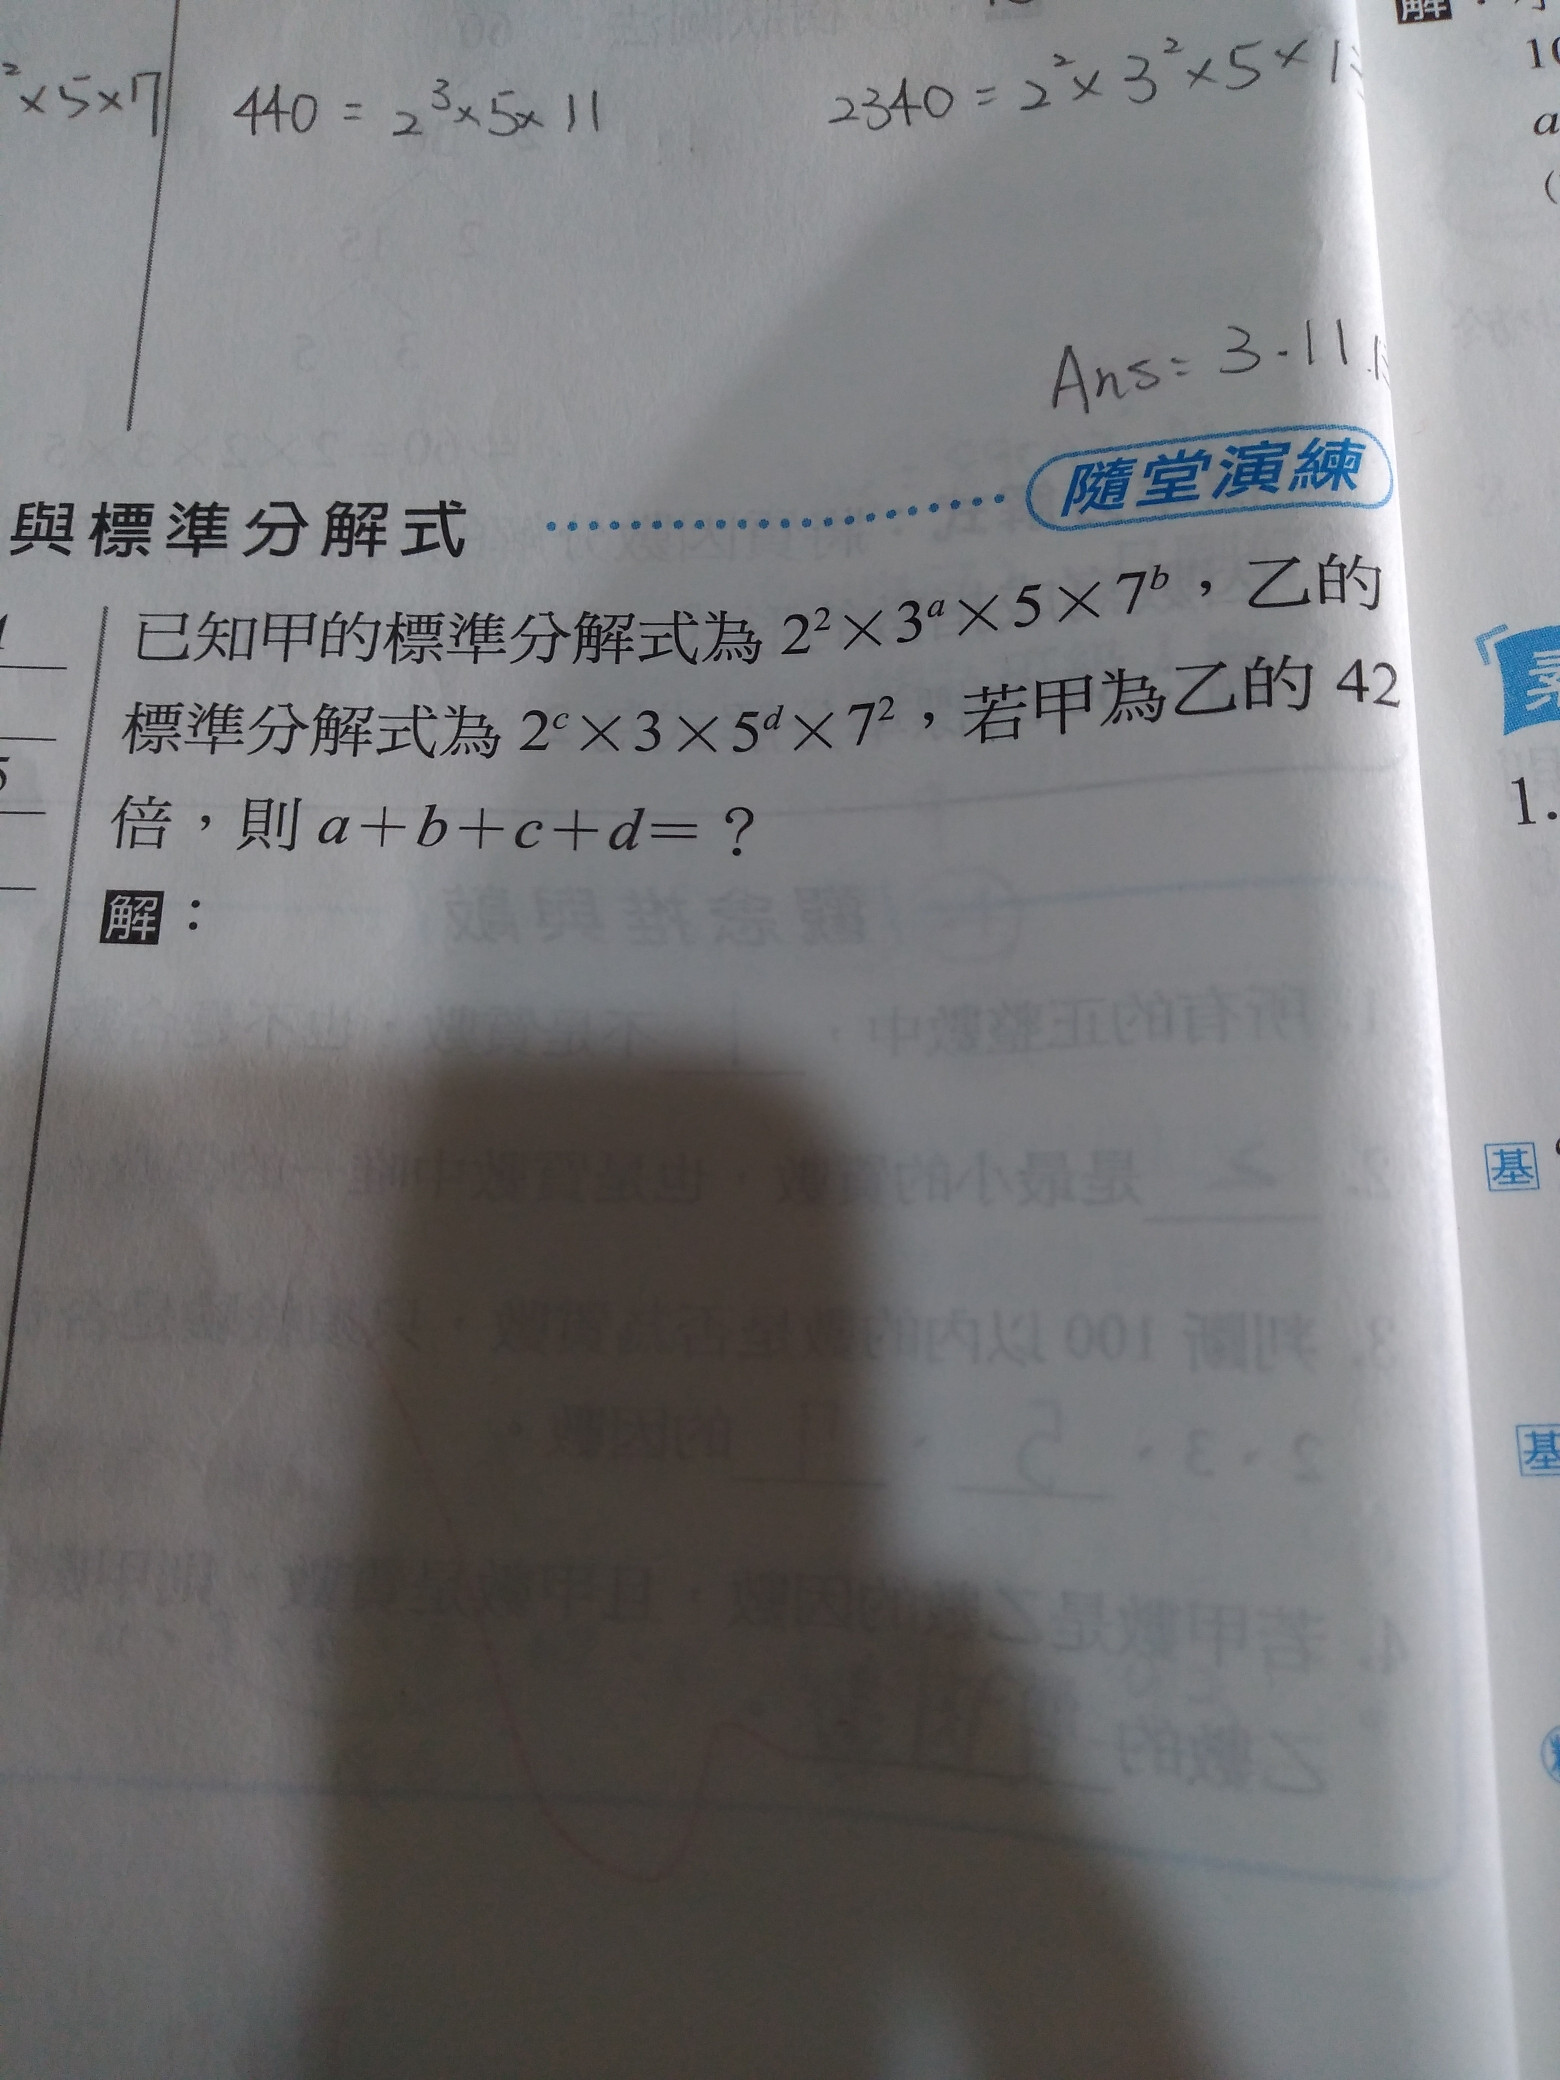 ²×5×7
440 = 2³×5×11
2340 = 2²×3²×5×1
Ans = 3.11.
隨堂演練
與標準分解式
已知甲的標準分解式為 2²×3ᵃ×5×7ᵇ，乙的
標準分解式為 2ᶜ×3×5ᵈ×7²，若甲為乙的 42
倍，則 a+b+c+d=？
解：
解：
10
a
(
1.
基
基